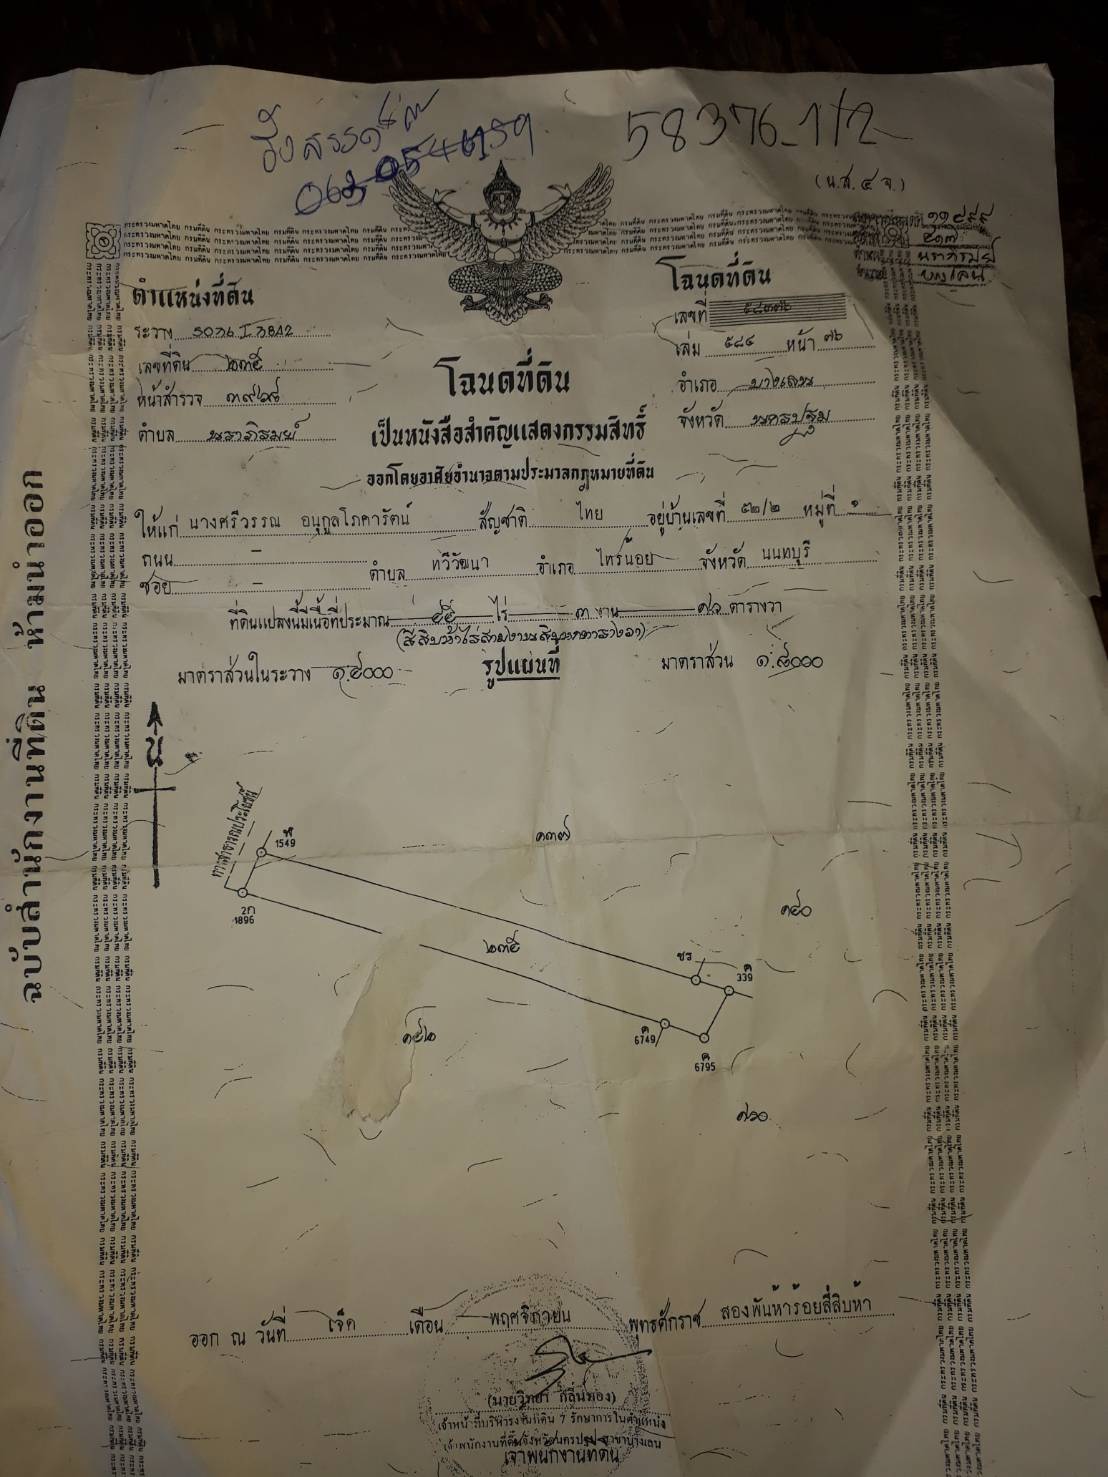 58376-1/2
(น.ส. ๔ จ.)
ตำแหน่งที่ดิน
ระวาง 5036 I 3842
เลขที่ดิน ๒๓๕
หน้าสำรวจ
ตำบล นราภิรมย์
โฉนดที่ดิน
เลขที่ ๕๘๓๗๖
เล่ม ๕๘๔ หน้า ๗๖
อำเภอ บางเลน
จังหวัด นครปฐม
โฉนดที่ดิน
เป็นหนังสือสำคัญแสดงกรรมสิทธิ์
ออกโดยอาศัยอำนาจตามประมวลกฎหมายที่ดิน
ให้แก่ นางศรีวรรณ อนุกูลโภคารัตน์ สัญชาติ ไทย อยู่บ้านเลขที่ ๕๒/๒ หมู่ที่
ถนน -
ซอย - ตำบล ทวีวัฒนา อำเภอ ไทรน้อย จังหวัด นนทบุรี
ที่ดินแปลงนี้มีเนื้อที่ประมาณ ๔๕ ไร่ ๓ งาน ตารางวา
มาตราส่วนในระวาง ๑:๔๐๐๐ รูปแผนที่ มาตราส่วน ๑:๔๐๐๐
น
ทางสาธารณประโยชน์
1549
๑๓๗
2ก
1896
๒๓๕
๑๔๐
ชร
339
๑๕๒
6749
6795
ออก ณ วันที่ เจ็ด เดือน พฤศจิกายน พุทธศักราช สองพันห้าร้อยสี่สิบห้า
(นายวิทยา กลิ่นทอง)
เจ้าหน้าที่บริหารงานที่ดิน 7 รักษาการในตำแหน่ง
เจ้าพนักงานที่ดินจังหวัดนครปฐม สาขาบางเลน
เจ้าพนักงานที่ดิน
ฉบับสำนักงานที่ดิน ห้ามนำออก